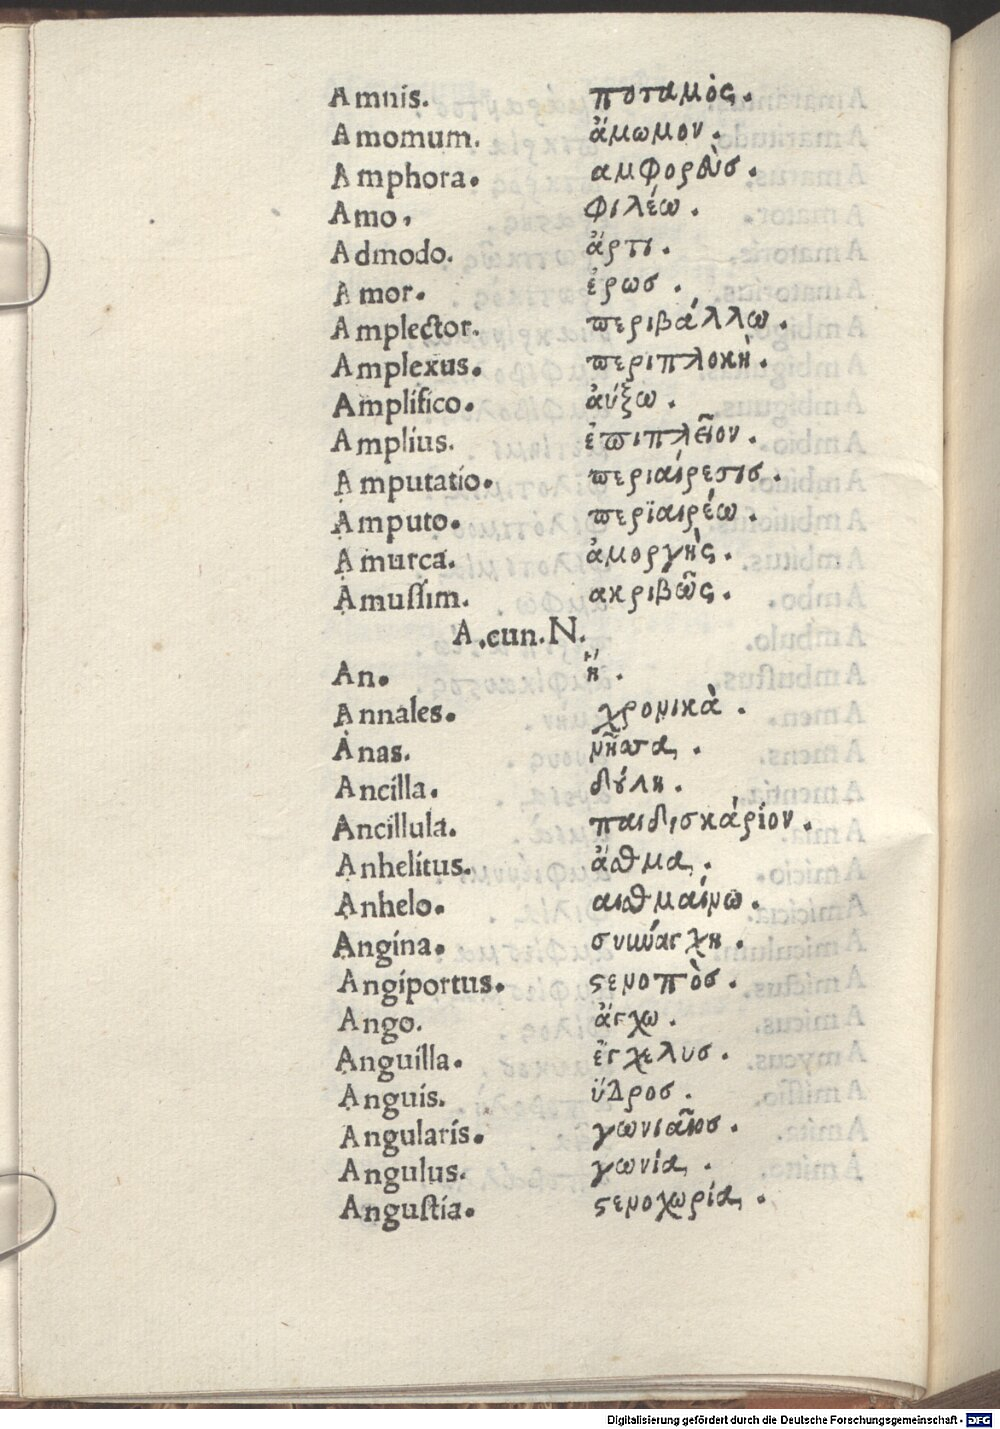 Amnis. ποταμὸς.
Amomum. ἄμωμον.
Amphora. αμφορὃυσ.
Amo. φιλέω.
Admodo. ἄρτι.
Amor. ἐρωσ.
Amplector. περιβάλλω.
Amplexus. περιπλοκὴ.
Amplifico. ἀύξω.
Amplius. ἐπιπλεῖον.
Amputatio. περιαίρεσισ.
Amputo. περϊαιρέω.
Amurca. ἀμοργὴς.
Amuſſim. ακριβῶς.
A.cun.N.
An. ἤ.
Annales. χρονικὰ.
Anas. νῆσσα.
Ancilla. δύλη.
Ancillula. παιδισκάριον.
Anhelitus. ἄσθμα.
Anhelo. αισθμαίνω.
Angina. συνάγχη.
Angiportus. ϛενοπὸσ.
Ango. ἄγχω.
Anguilla. ἔγχελυσ.
Anguis. ὕδροσ.
Angularis. γωνιαῖοσ.
Angulus. γωνία.
Anguſtia. ϛενοχωρία.
Digitalisierung gefördert durch die Deutsche Forschungsgemeinschaft - DFG